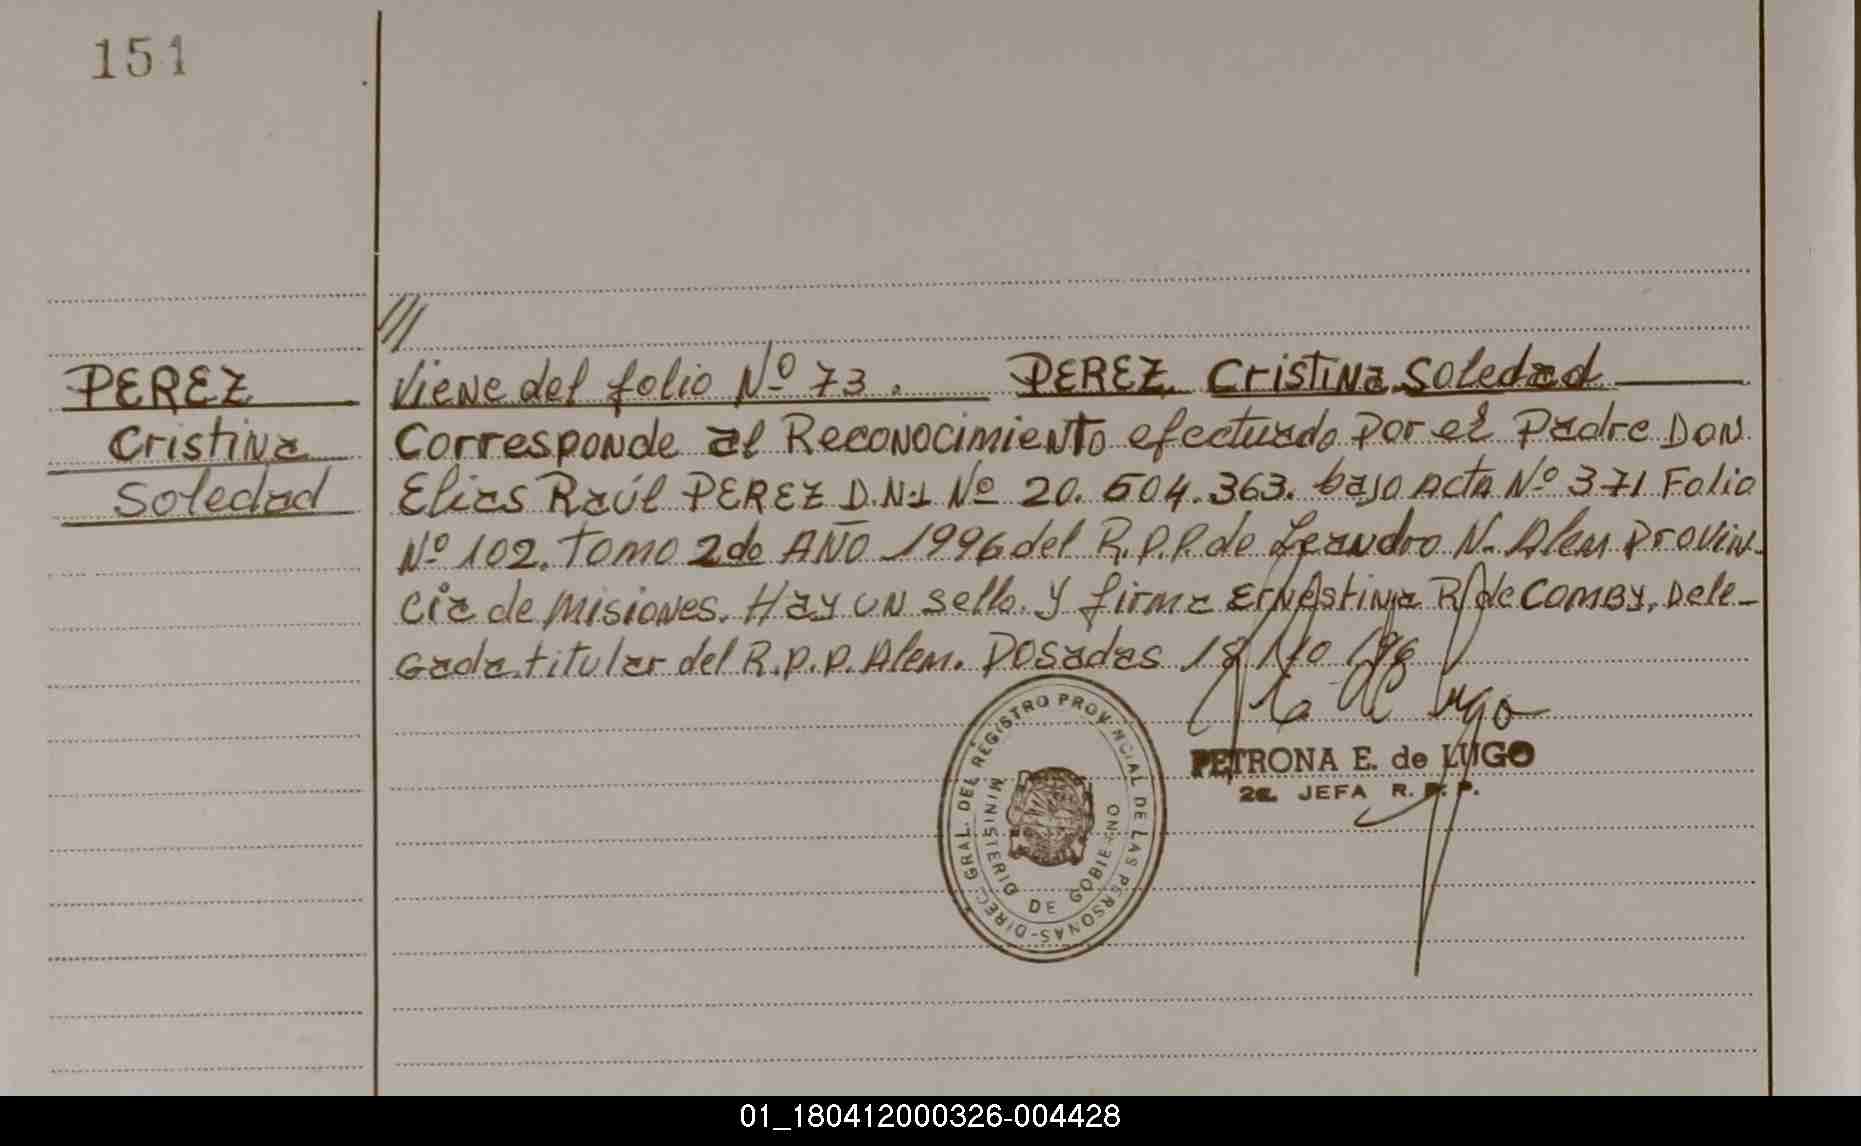 151
PEREZ
Cristina
Soledad
Viene del folio Nº 73. PEREZ Cristina Soledad
Corresponde al Reconocimiento efectuado por el Padre DON
Elias Raúl PEREZ D.N.I Nº 20.504.363. bajo Acta Nº 371 Folio
Nº 102. Tomo 2do AÑO 1996 del R.P.P. de Leandro N. Alem Provin-
cia de Misiones. Hay un sello. y firma Ernestina R de Comby, Dele-
gada titular del R.P.P. Alem. Posadas 18/10/96
PETRONA E. de LUGO
2a. JEFA R.P.P.
DIREC. GRAL. DEL REGISTRO PROVINCIAL DE LAS PERSONAS-
MINISTERIO DE GOBIERNO
01_180412000326-004428